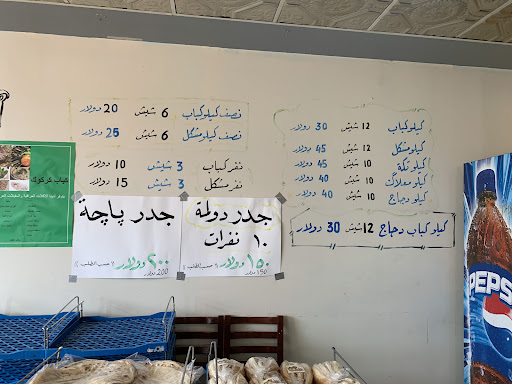 نصف كيلو كباب 6 شيش 20 دولار
نصف كيلو مشكل 6 شيش 25 دولار
نفر كباب 3 شيش 10 دولار
نفر مشكل 3 شيش 15 دولار
كيلو كباب 12 شيش 30 دولار
كيلو مشكل 12 شيش 45 دولار
كيلو تكة 10 شيش 45 دولار
كيلو معلاك 10 شيش 40 دولار
كيلو دجاج 10 شيش 40 دولار
كيلو كباب دجاج 12 شيش 30 دولار
جدر دولمة
١٠ نفرات
١٥٠ دولار
150 دولار
(( حسب الطلب ))
جدر پاچة
٢٠٠ دولار
200 دولار
(( حسب الطلب ))
كباب كركوك
PEPSI